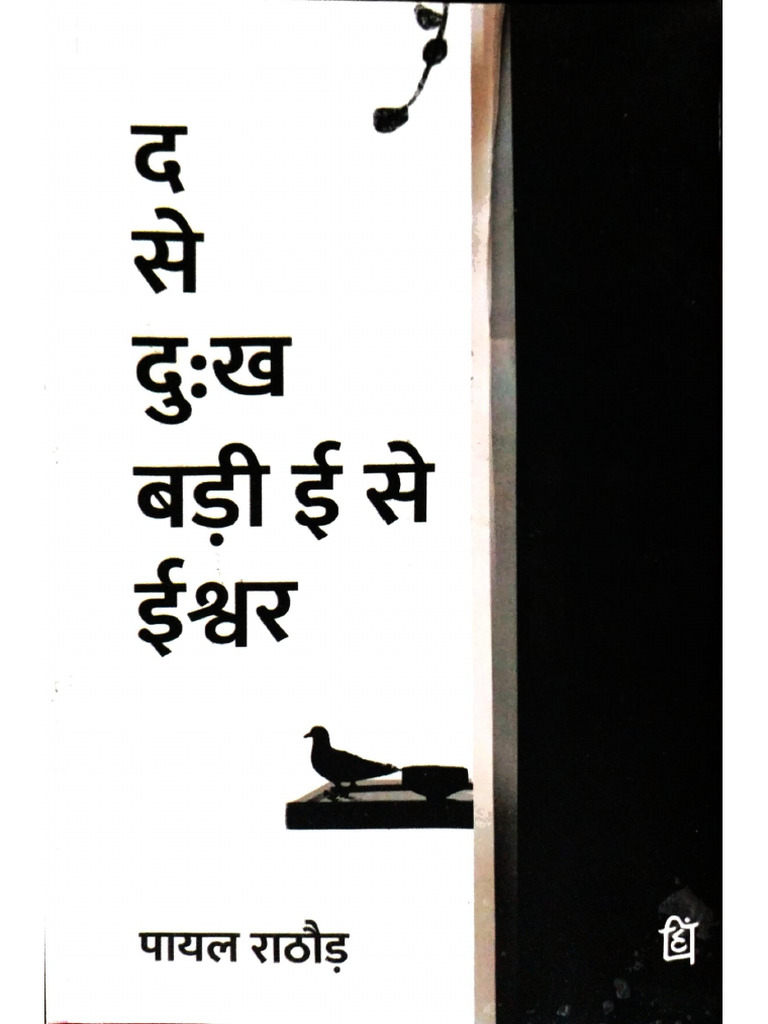 द
से
दु:ख
बड़ी ई से
ईश्वर
पायल राठौड़